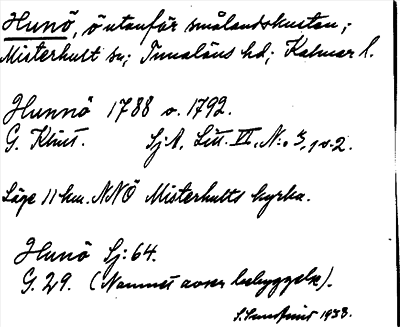 Hunö, ö utanför smålandskusten;
Misterhult sn; Tunaläns hd; Kalmar l.
Hunnö 1788 o. 1792.
G. Klint. Sj.A. Litt. VI. N:o 3, 1 o. 2.
Läge 11 km. NNÖ Misterhults kyrka.
Hunö Sj: 64.
G. 29. (Namnet avser bebyggelse).
1933.